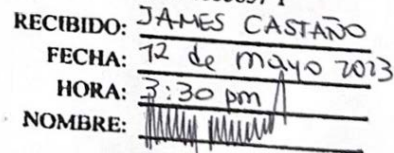 RECIBIDO: JAMES CASTAÑO
FECHA: 12 de mayo 2023
HORA: 3:30 pm
NOMBRE: